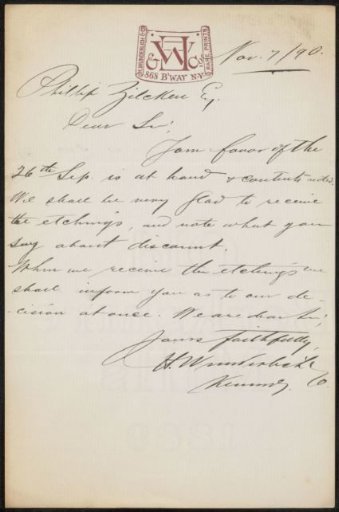 & W Co
868 B'WAY N.Y.
Nov. 7/90.
Philip Zilcken Esq.
Dear Sir;
Your favor of the
26th Sep is at hand & contents noted.
We shall be very glad to receive
the etchings, and note what you
say about discount.
When we receive the etchings we
shall inform you as to our de-
cision at once. We are dear Sir;
Yours faithfully,
H. Wunderlich &
Co.